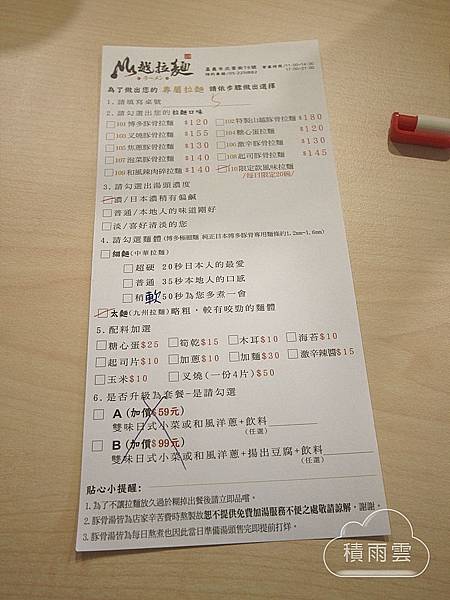 山越拉麵
ラーメン
嘉義市北榮街78號 營業時間/11:00~14:00
預約專線/05-2250882 17:00~21:00
為了做出您的 專屬拉麵 請依步驟做出選擇
1. 請填寫桌號 5
2. 請勾選出您的拉麵口味
101 博多豚骨拉麵 $120 102 特製山越豚骨拉麵 $180
103 叉燒豚骨拉麵 $155 104 糖心蛋拉麵 $120
105 焦蔥豚骨拉麵 $130 106 激辛豚骨拉麵 $130
107 泡菜豚骨拉麵 $140 108 起司豚骨拉麵 $145
109 和風辣肉碎拉麵 $140 110 限定款風味拉麵
/每日限定20碗/
3. 請勾選出湯頭濃度
濃/日本濃稍有偏鹹
普通/本地人的味道剛好
淡/喜好清淡的您
4. 請勾選麵體(博多極細麵 純正日本博多豚骨專用麵條約1.2mm~1.6mm)
細麵(中華拉麵)
超硬 20秒日本人的最愛
普通 35秒本地人的口感
稍軟 50秒為您多煮一會
太麵(九州拉麵)略粗,較有咬勁的麵體
5. 配料加選
糖心蛋$25 筍乾$15 木耳$10 海苔$10
起司片$10 加蔥$10 加麵$30 激辛辣醬$15
玉米$10 叉燒(一份4片)$50
6. 是否升級為套餐-是請勾選
A (加價$59元)
雙味日式小菜或和風洋蔥+飲料
(任選)
B (加價$99元)
雙味日式小菜或和風洋蔥+揚出豆腐+飲料
(任選)
貼心小提醒:
1. 為了不讓拉麵放久過於糊掉出餐後請立即品嚐。
2. 豚骨湯皆為店家辛苦費時熬製故恕不提供免費加湯服務不便之處敬請諒解,謝謝。
3. 豚骨湯皆為每日熬煮也因此當日準備湯頭售完即提前打烊。
積雨雲